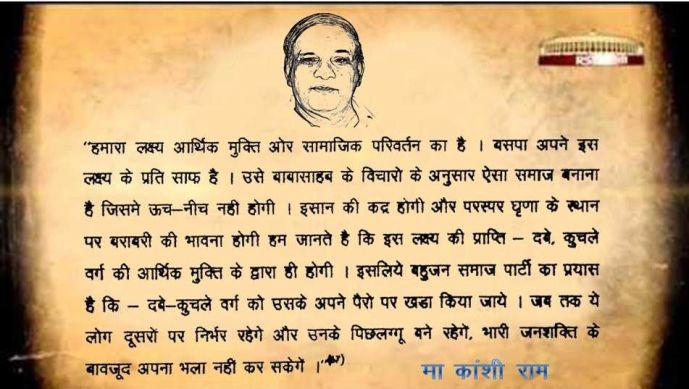 "हमारा लक्ष्य आर्थिक मुक्ति ओर सामाजिक परिवर्तन का है । बसपा अपने इस
लक्ष्य के प्रति साफ है । उसे बाबासाहब के विचारो के अनुसार ऐसा समाज बनाना
है जिसमे ऊच–नीच नही होगी । इसान की कद्र होगी और परस्पर घृणा के स्थान
पर बराबरी की भावना होगी हम जानते है कि इस लक्ष्य की प्राप्ति – दबे, कुचले
वर्ग की आर्थिक मुक्ति के द्वारा ही होगी । इसलिये बहुजन समाज पार्टी का प्रयास
है कि – दबे–कुचले वर्ग को उसके अपने पैरो पर खडा किया जाये । जब तक ये
लोग दूसरों पर निर्भर रहेगे और उनके पिछलग्गू बने रहेगें, भारी जनशक्ति के
बावजूद अपना भला नहीं कर सकेगें ।"
मा कांशी राम